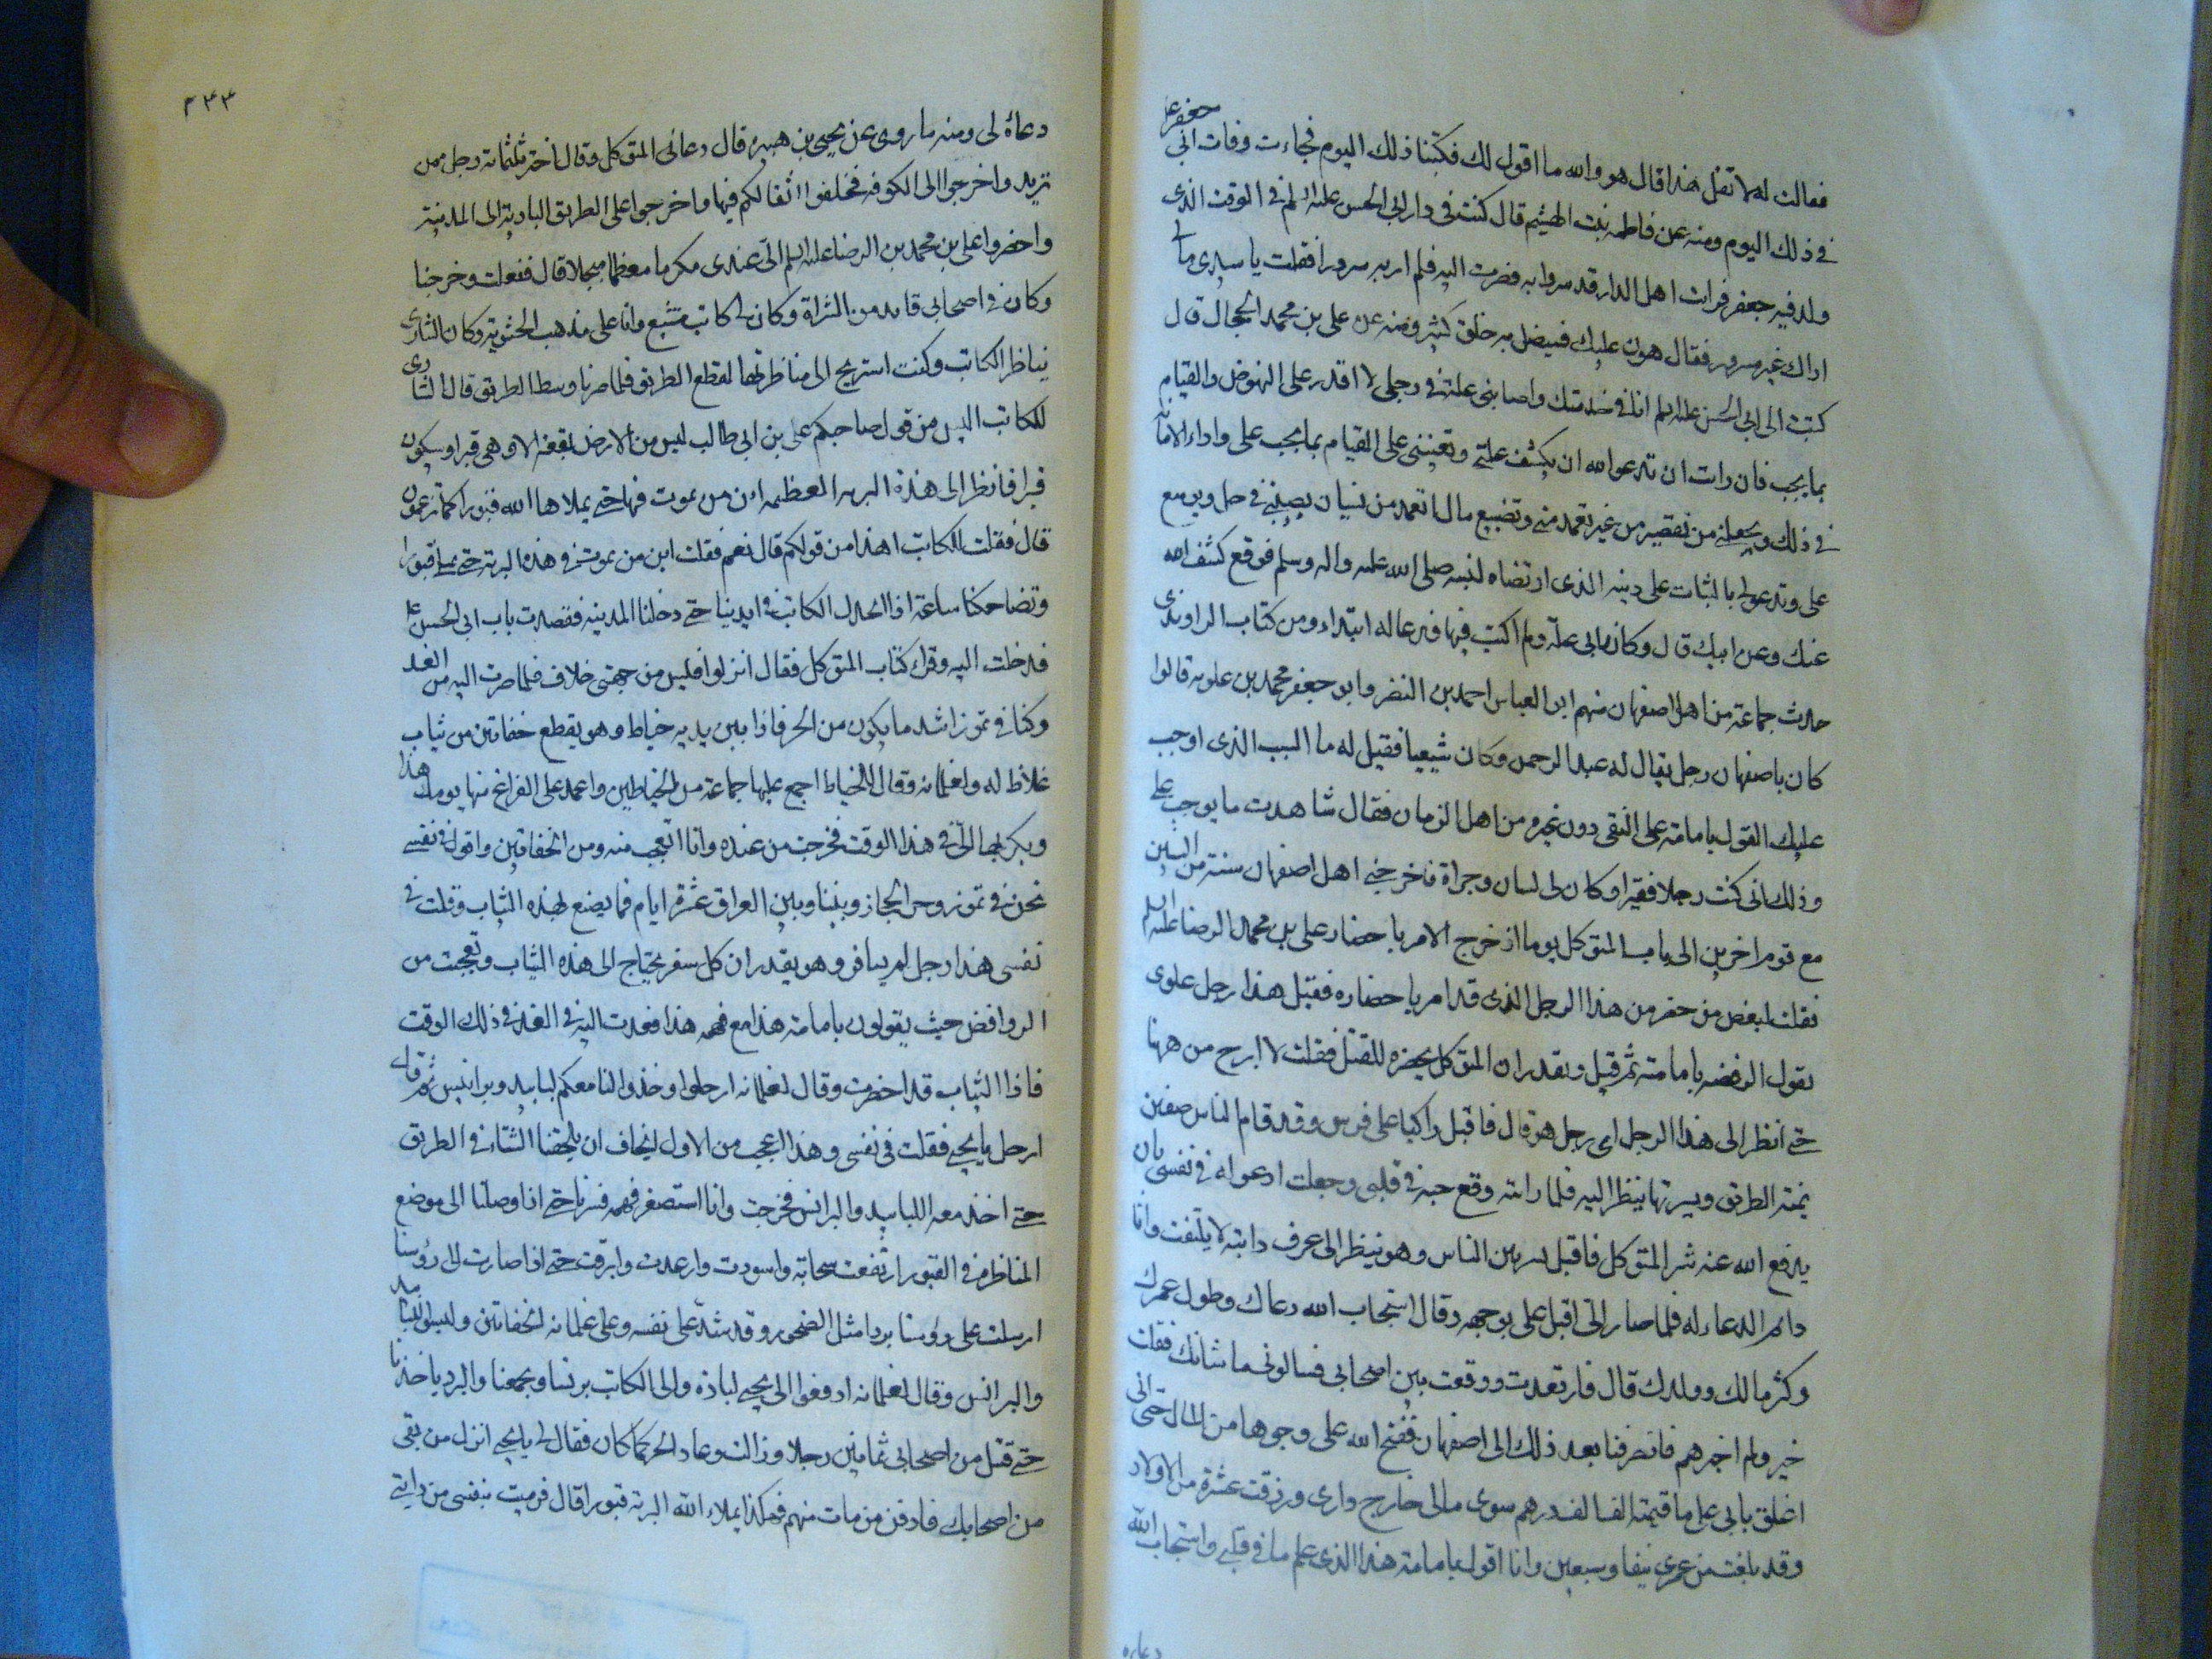 جعفر ع
فقالت له لا تقل هذا قال هو والله ما اقول لك فكتبنا ذلك اليوم فجاءت وفات ابى
فى ذلك اليوم ومنه عن فاطمه بنت الهيثم قال كنت فى دار ابى الحسن عليه السلم فى الوقت الذى
ولد فيه جعفر فرات اهل الدار قد سروا به فصرت اليه فلم ار به سرورا فقلت يا سيدى ما لى
اراك غير مسرور فقال هون عليك فسيضل به خلق كثير ومنه عن على بن محمد الحجال قال
كتبت الى ابى الحسن عليه السلم انا فى خدمتك واصابنى علة فى رجلى لا اقدر على النهوض والقيام
بما يجب فان رات ان تدعو الله ان يكشف علتى وتعيننى على القيام بما يجب على واداء الامانه
فى ذلك ويجعلنى من تقصير من غير تعمد منى وتضييع مال اتعمد من نسيان يصيبنى فى حل ويوسع
على وتدعو لى بالثبات على دينه الذى ارتضاه لنبيه صلى الله عليه واله وسلم فوقع كشف الله
عنك وعن ابيك قال وكان بابى علة ولم اكتب فيها فدعا له ابتداء ومن كتاب الراوندى
حدث جماعة من اهل اصفهان منهم ابو العباس احمد بن النضر وابو جعفر محمد بن علويه قالوا
كان باصفهان رجل يقال له عبد الرحمن وكان شيعيا فقيل له ما السبب الذى اوجب
عليك القول بامامة على النقى دون غيره من اهل الزمان فقال شاهدت ما يوجب على
وذلك انى كنت رجلا فقيرا وكان لى لسان وجراة فاخرجنى اهل اصفهان سنة من السنين
مع قوم اخرين الى باب المتوكل يوما اذ خرج الامر باحضار على بن محمد الرضا عليه السلم
فقلت لبعض من حضر من هذا الرجل الذى قد امر باحضاره فقيل هذا رجل علوى
تقول الرفضه بامامته ثم قيل ويقدر ان المتوكل يحضره للقتل فقلت لا ابرح من ههنا
حتى انظر الى هذا الرجل اى رجل هو قال فاقبل راكبا على فرس وقد قام الناس صفين
يمنة الطريق ويسرتها ينظر اليه فلما راته وقع حبه فى قلبى وجعلت ادعو له فى نفسى بان
يدفع الله عنه شر المتوكل فاقبل يسر بين الناس وهو ينظر الى عرف دابته لا يلتفت وانا
دائم الدعاء له فلما صار الى اقبل على بوجهه وقال استجاب الله دعاك وطول عمرك
وكثر مالك وولدك قال فارتعدت ووقعت بين اصحابى فسالونى ما شانك فقلت
خير ولم اخبرهم فانصرفنا بعد ذلك الى اصفهان ففتح الله على وجوها من المال حتى انى
اغلق بابى على ما قيمته الف الف درهم سوى مالى خارج دارى ورزقت عشرة من الاولاد
وقد بلغت من عمرى نيفا وسبعين وانا اقول بامامة هذا الذى علم ما فى قلبى واستجاب الله
دعاءه
٣٣٣
دعاءه لى ومنه ما روى عن يحيى بن هبيره قال دعانى المتوكل وقال اختر ثلثمائة رجل ممن
تريد واخرجوا الى الكوفه فخلفوا اثقالكم فيها واخرجوا على الطريق البادية الى المدينة
واحضروا على بن محمد بن الرضا عليه السلم الى عندى مكرما معظما مبجلا قال ففعلت وخرجنا
وكان فى اصحابى قايد من الشراة وكان لى كاتب متشيع وانا على مذهب الحشوية وكان الشارى
يناظر الكاتب وكنت استريح الى مناظرتهما لقطع الطريق فلما صرنا وسط الطريق قال الشارى
للكاتب اليس من قول صاحبكم على بن ابى طالب ليس من الارض بقعة الا وهى قبر او سيكون
قبرا فانظر الى هذه البريه العظيمه اين من يموت فيها حتى يملاها الله قبورا كما تزعمون
قال فقلت للكاتب اهذا من قولكم قال نعم فقلت اين من يموت فى هذه البرية حتى يمتلى قبورا
وتضاحكنا ساعة اذ انخذل الكاتب فى ايدينا حتى دخلنا المدينه فقصدت باب ابى الحسن ع
فدخلت اليه وقرا كتاب المتوكل فقال انزلوا فليس من جهتى خلاف فلما صرت اليه من الغد
وكنا فى تموز اشد ما يكون من الحر فاذا بين يديه خياط وهو يقطع خفاتين من ثياب
غلاظ له ولغلمانه وقال للخياط اجمع عليها جماعة من الخياطين واعمد على الفراغ منها يومك هذا
وبكر بها الى فى هذا الوقت فخرجت من عنده وانا اتعجب منه ومن الخفاتين واقول فى نفسى
نحن فى تموز وحر الحجاز وبيننا وبين العراق عشرة ايام فما يصنع بهذه الثياب وقلت فى
نفسى هذا رجل لم يسافر وهو يقدر ان كل سفر يحتاج الى هذه الثياب وتعجبت من
الروافض حيث يقولون بامامة هذا مع فهمه هذا فعدت اليه فى الغد فى ذلك الوقت
فاذا الثياب قد احضرت وقال لغلمانه ارحلوا وخذوا لنا معكم لبابيد وبرانيس ثم قال
ارحل يا يحيى فقلت فى نفسى وهذا اعجب من الاول ايخاف ان يلحقنا الشتاء فى الطريق
حتى اخذ معه اللبابيد والبرانس فخرجت وانا استصغر فهمه فسرنا حتى اذا وصلنا الى موضع
المناظره فى القبور ارتفعت سحابة واسودت وارعدت وابرقت حتى اذا صارت الى رؤسنا
ارسلت على رؤسنا بردا مثل الصخور وقد شد على نفسه وعلى غلمانه الخفاتين ولبسوا اللبابيد
والبرانس وقال لغلمانه ادفعوا الى يحيى لباده والى الكاتب برنسا وتجمعنا والبرد ياخذنا
حتى قتل من اصحابى ثمانين رجلا وزالت وعاد الحر كما كان فقال لى يا يحيى انزل من بقى
من اصحابك فادفن من مات منهم فهكذا يملاء الله البرية قبورا قال فرميت بنفسى من دابتى